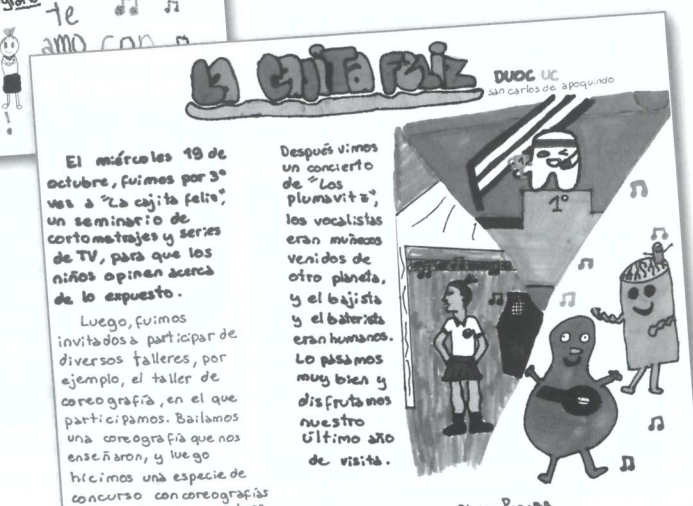 te
amo con
La Cajita Feliz
DUOC UC
san carlos de apoquindo
El miércoles 19 de
octubre, fuimos por 3°
vez a "La cajita feliz",
un seminario de
cortometrajes y series
de TV, para que los
niños opinen acerca
de lo expuesto.
Luego, fuimos
invitados a participar de
diversos talleres, por
ejemplo, el taller de
coreografía, en el que
participamos. Bailamos
una coreografía que nos
enseñaron, y luego
hicimos una especie de
concurso con coreografías
Después vimos
un concierto
de "Los
plumavitz",
los vocalistas
eran muñecos
venidos de
otro planeta,
y el bajista
y el baterista
eran humanos.
Lo pasamos
muy bien y
disfrutamos
nuestro
último año
de visita.
1°